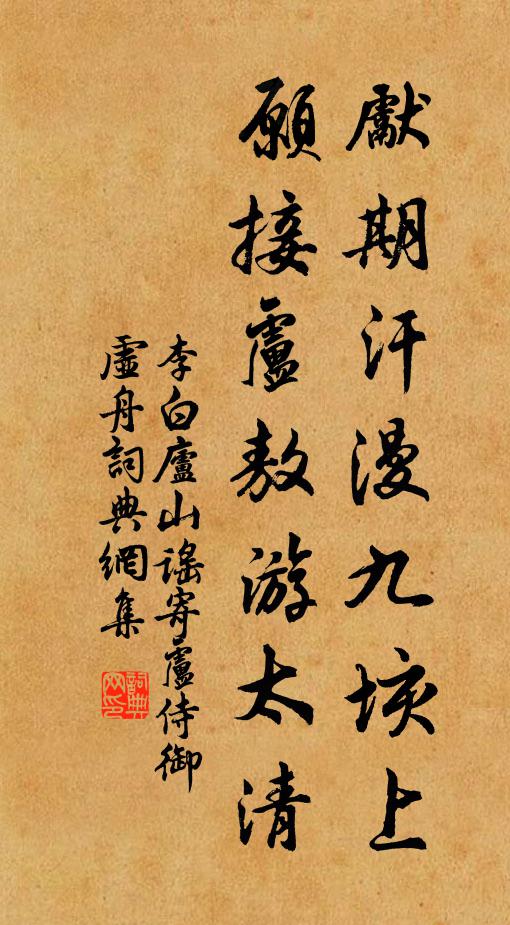 獻期汗漫九垓上
願接盧敖游太清
李白廬山謠寄盧侍御
虛舟詞典網集
詞典
网印